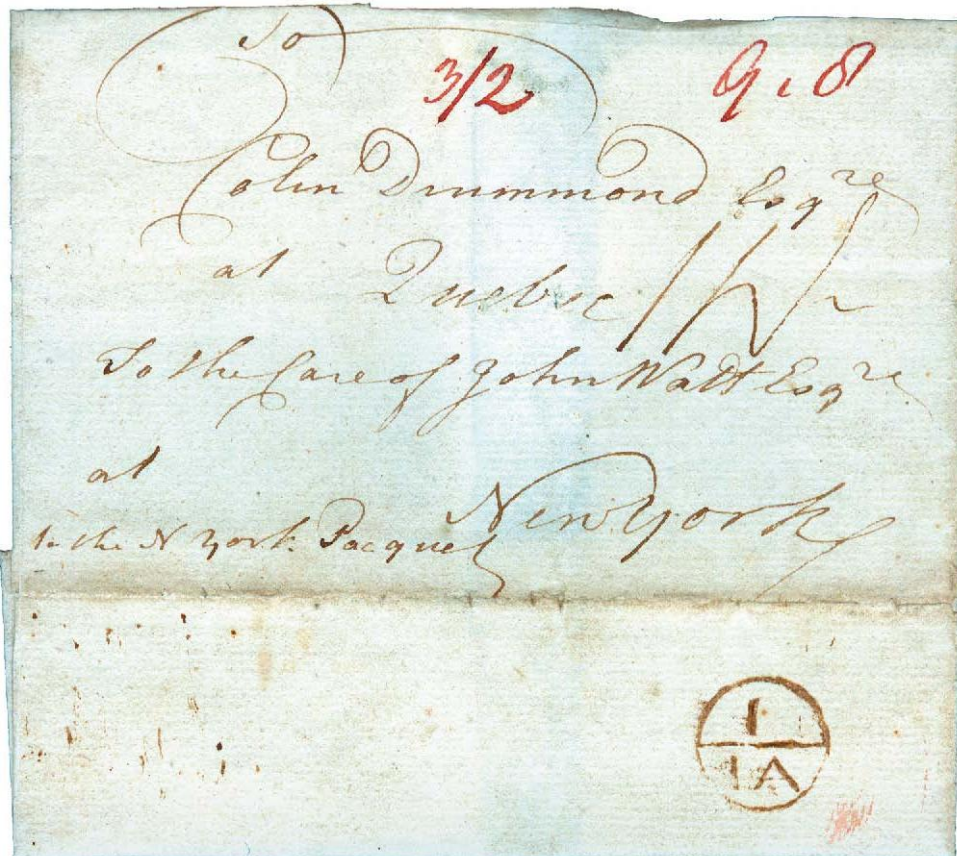 To
3/2 9.8
Colin Drummond Esqre
at Quebec
To the Care of John Watt Esqre
at
New York
to the N York Pacquet
1
IA